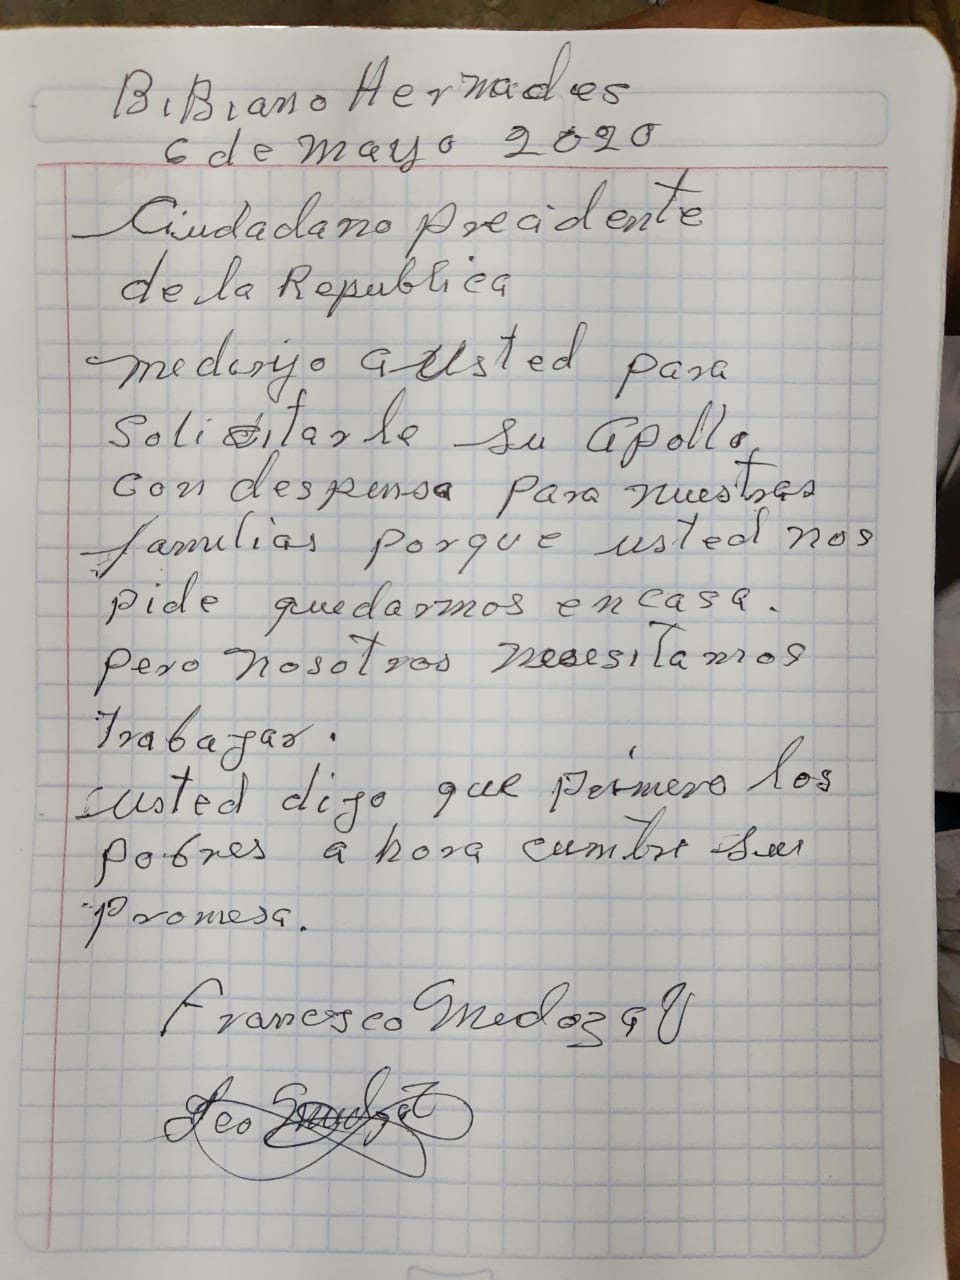 BiBiano Hernades
6 de mayo 2020
Ciudadano precidente
de la Republica
mediriJo a usted para
Solisitarle su apollo
con despensa para nuestras
familias porque usted nos
pide quedarnos en casa.
pero nosotros nesesitamos
trabajar.
usted dijo que primero los
pobres a hora cumbre su
promesa.
Francisco Medoza V